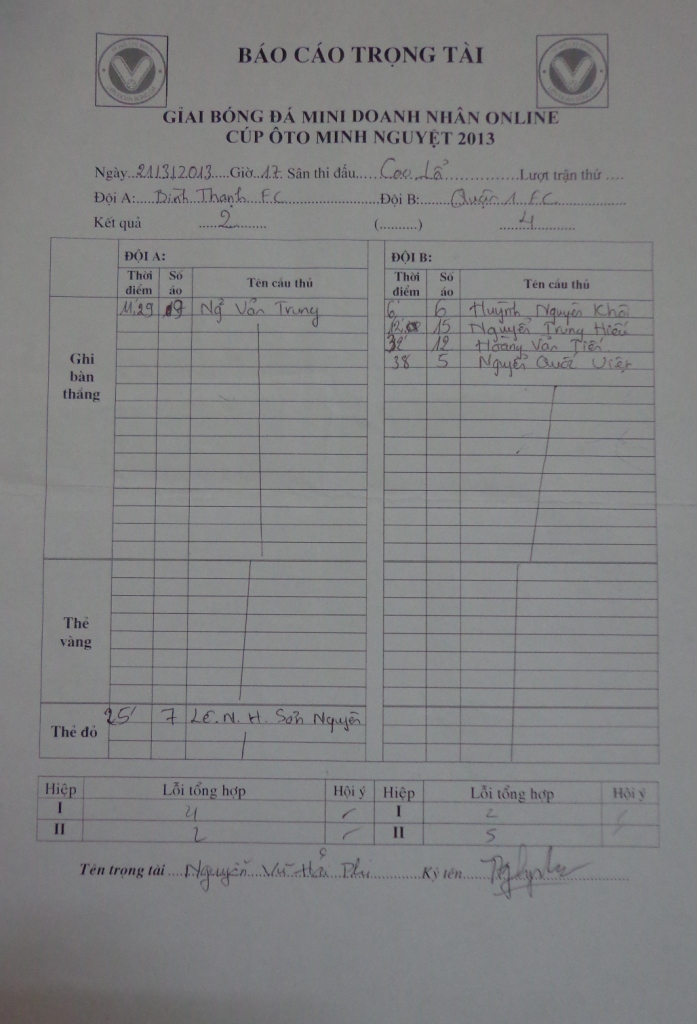 BÁO CÁO TRỌNG TÀI
GIẢI BÓNG ĐÁ MINI DOANH NHÂN ONLINE
CÚP ÔTO MINH NGUYỆT 2013
Ngày...21/3/2013...Giờ.17. Sân thi đấu...Cao Lỗ...Lượt trận thứ ....
Đội A:...Bình Thạnh FC... Đội B:...Quận 1 FC...
Kết quả ...2... (..........) ...4...
ĐỘI A: ĐỘI B:
Thời điểm Số áo Tên cầu thủ Thời điểm Số áo Tên cầu thủ
Ghi bàn thắng
11,29 19 Ngô Văn Trung 6' 6 Huỳnh Nguyên Khôi
15 Nguyễn Trung Hiếu
32' 12 Hoàng Văn Tiến
38 5 Nguyễn Quốc Việt
Thẻ vàng
Thẻ đỏ 25' 7 LÊ.N.H. Sơn Nguyên
Hiệp Lỗi tổng hợp Hội ý Hiệp Lỗi tổng hợp Hội ý
I 4 I 2
II 2 II 5
Tên trọng tài...Nguyễn Vũ Hải Phi...Ký tên